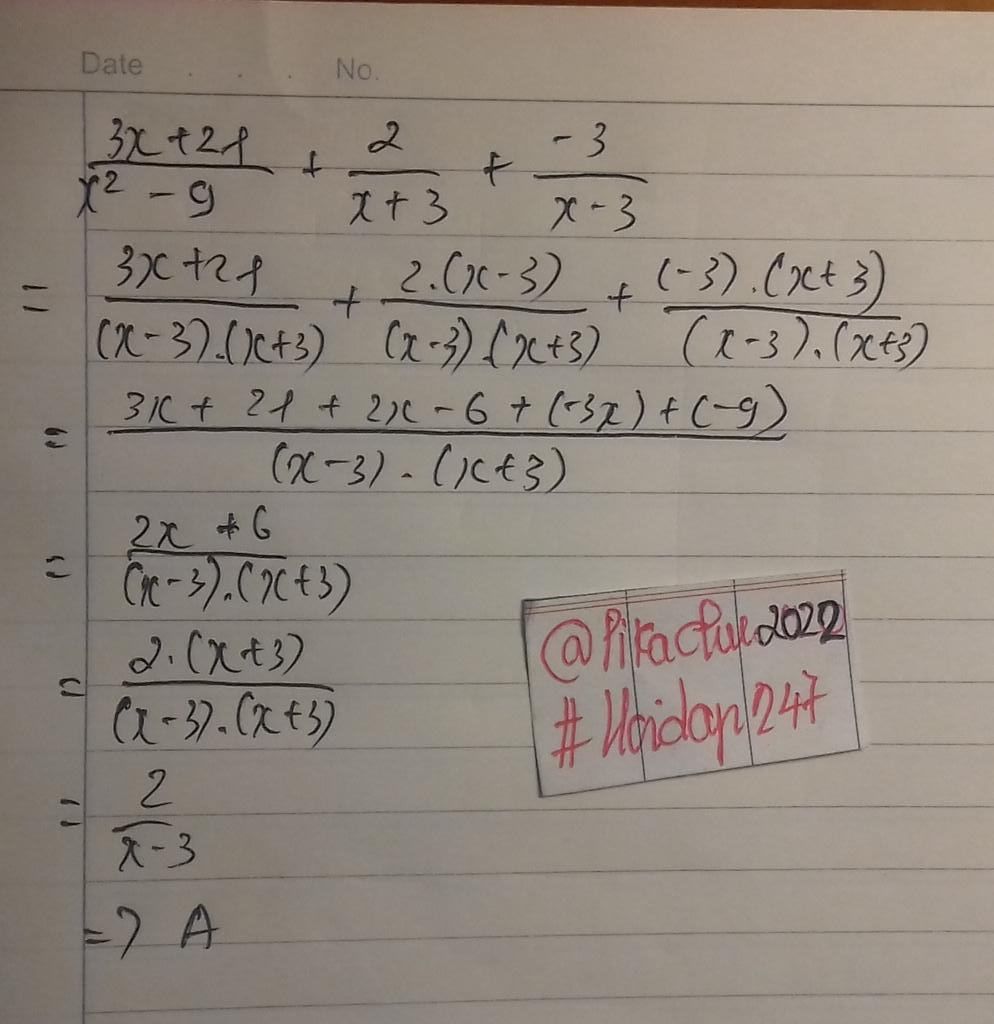 Date . . . No.
3x + 21 / x² - 9 + 2 / x + 3 + -3 / x - 3
= 3x + 21 / (x - 3).(x + 3) + 2.(x - 3) / (x - 3).(x + 3) + (-3).(x + 3) / (x - 3).(x + 3)
= 3x + 21 + 2x - 6 + (-3x) + (-9) / (x - 3).(x + 3)
= 2x + 6 / (x - 3).(x + 3)
= 2.(x + 3) / (x - 3).(x + 3)
= 2 / x - 3
=> A
@Pikachu2022
#Hoidap247